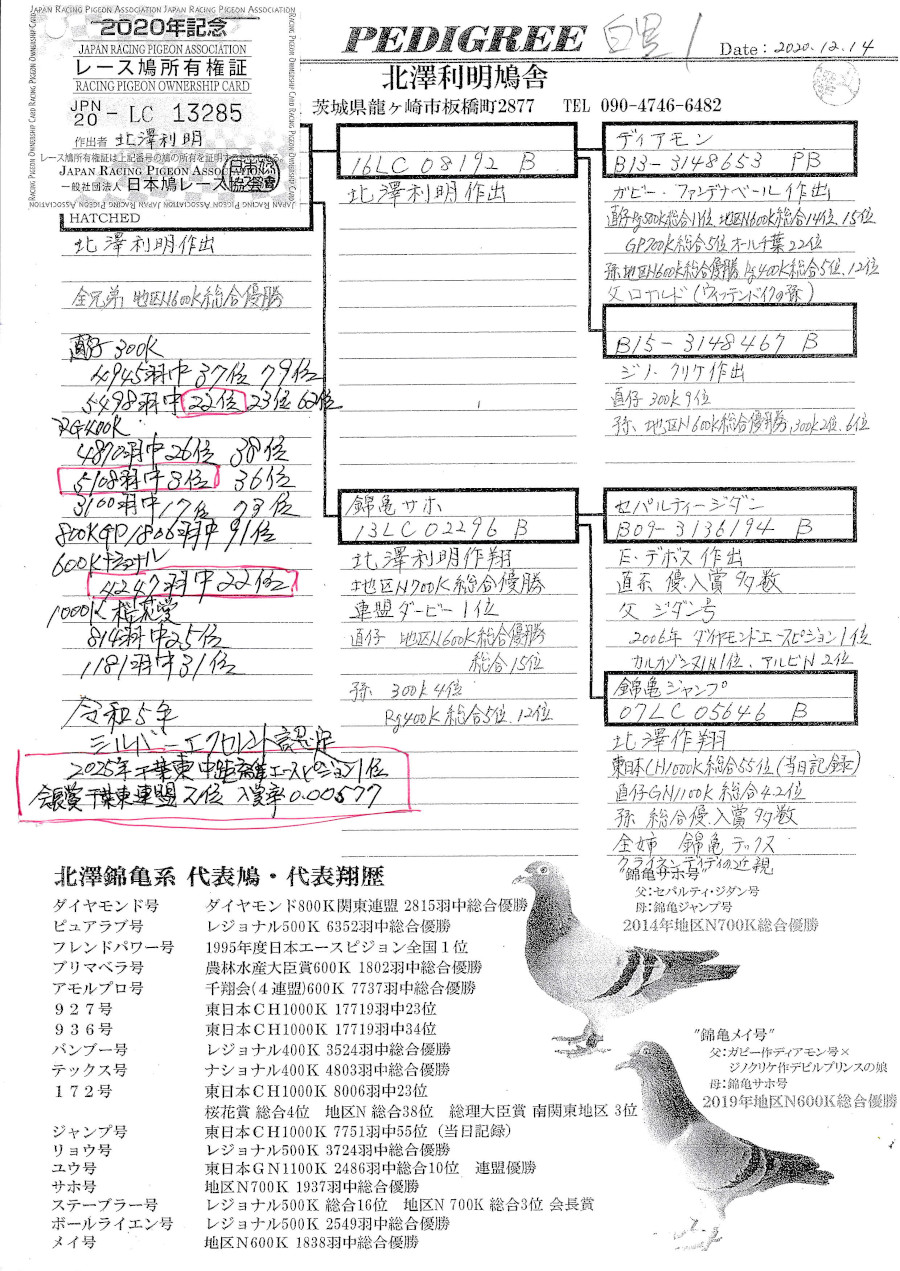 JAPAN RACING PIGEON ASSOCIATION
2020年記念
JAPAN RACING PIGEON ASSOCIATION
レース鳩所有権証
RACING PIGEON OWNERSHIP CARD
JPN
20 - LC 13285
作出者 北澤利明
レース鳩所有権証は上記番号の鳩の所有を証明する
JAPAN RACING PIGEON ASSOCIATION
一般社団法人 日本鳩レース協会
PEDIGREE
Date : 2020.12.14
北澤利明鳩舎
茨城県龍ヶ崎市板橋町2877 TEL 090-4746-6482
HATCHED
北澤利明作出
全兄弟、地区N600K総合優勝
直仔 300K
4945羽中 37位 79位
5498羽中 22位 23位 62位
RG400K
4870羽中26位 38位
5108羽中3位 36位
3100羽中17位 73位
800KGP 1806羽中91位
600Kナショナル
4247羽中22位
1000K 桜花賞
814羽中25位
1181羽中31位
令和5年
シルバーエクセレント認定
2025年千葉東中距離エースピジョン1位
会長賞千葉東連盟2位 入賞率0.00577
16LC 08192 B
北澤利明作出
錦亀サホ
13LC 02296 B
北澤利明作翔
地区N700K総合優勝
連盟ダービー1位
直仔 地区N600K総合優勝
総合15位
孫 300K4位
Rg400K総合5位.12位
ディアモン
B13-3148653 PB
ガビー・ファンデナベール作出
直仔Rg500K総合11位 地区N600K総合14位 15位
GP700K総合5位オール千葉22位
孫 地区N600K総合優勝 Rg400K総合5位.12位
父ロナルド(ウィッテンドイクの孫)
B15-3148467 B
ジノ・クリケ作出
直仔 300K9位
孫、地区N600K総合優勝,300K2位.6位
セパルティージダン
B09-3136194 B
E・デボス作出
直系 優入賞多数
父 ジダン号
2006年 ダイヤモンドエースピジョン1位
カルカソンヌIN1位、アルビN2位
錦亀ジャンプ
07LC 05646 B
北澤作翔
東日本CH1000K総合55位(当日記録)
直仔GN1100K総合42位
孫 総合優.入賞多数
全姉 錦亀テックス
クライネンディディの近親
北澤錦亀系 代表鳩・代表翔歴
ダイヤモンド号 ダイヤモンド800K関東連盟 2815羽中総合優勝
ピュアラブ号 レジョナル500K 6352羽中総合優勝
フレンドパワー号 1995年度日本エースピジョン全国1位
プリマベラ号 農林水産大臣賞600K 1802羽中総合優勝
アモルプロ号 千翔会(4連盟)600K 7737羽中総合優勝
927号 東日本CH1000K 17719羽中23位
936号 東日本CH1000K 17719羽中34位
バンブー号 レジョナル400K 3524羽中総合優勝
テックス号 ナショナル400K 4803羽中総合優勝
172号 東日本CH1000K 8006羽中23位
桜花賞 総合4位 地区N 総合38位 総理大臣賞 南関東地区 3位
ジャンプ号 東日本CH1000K 7751羽中55位(当日記録)
リョウ号 レジョナル500K 3724羽中総合優勝
ユウ号 東日本GN1100K 2486羽中総合10位 連盟優勝
サホ号 地区N700K 1937羽中総合優勝
ステープラー号 レジョナル500K 総合16位 地区N 700K 総合3位 会長賞
ポールライエン号 レジョナル500K 2549羽中総合優勝
メイ号 地区N600K 1838羽中総合優勝
"錦亀サホ号"
父:セパルティ・ジダン号
母:錦亀ジャンプ号
2014年地区N700K総合優勝
"錦亀メイ号"
父:ガビー作ディアモン号×
ジノクリケ作デビルプリンスの娘
母:錦亀サホ号
2019年地区N600K総合優勝